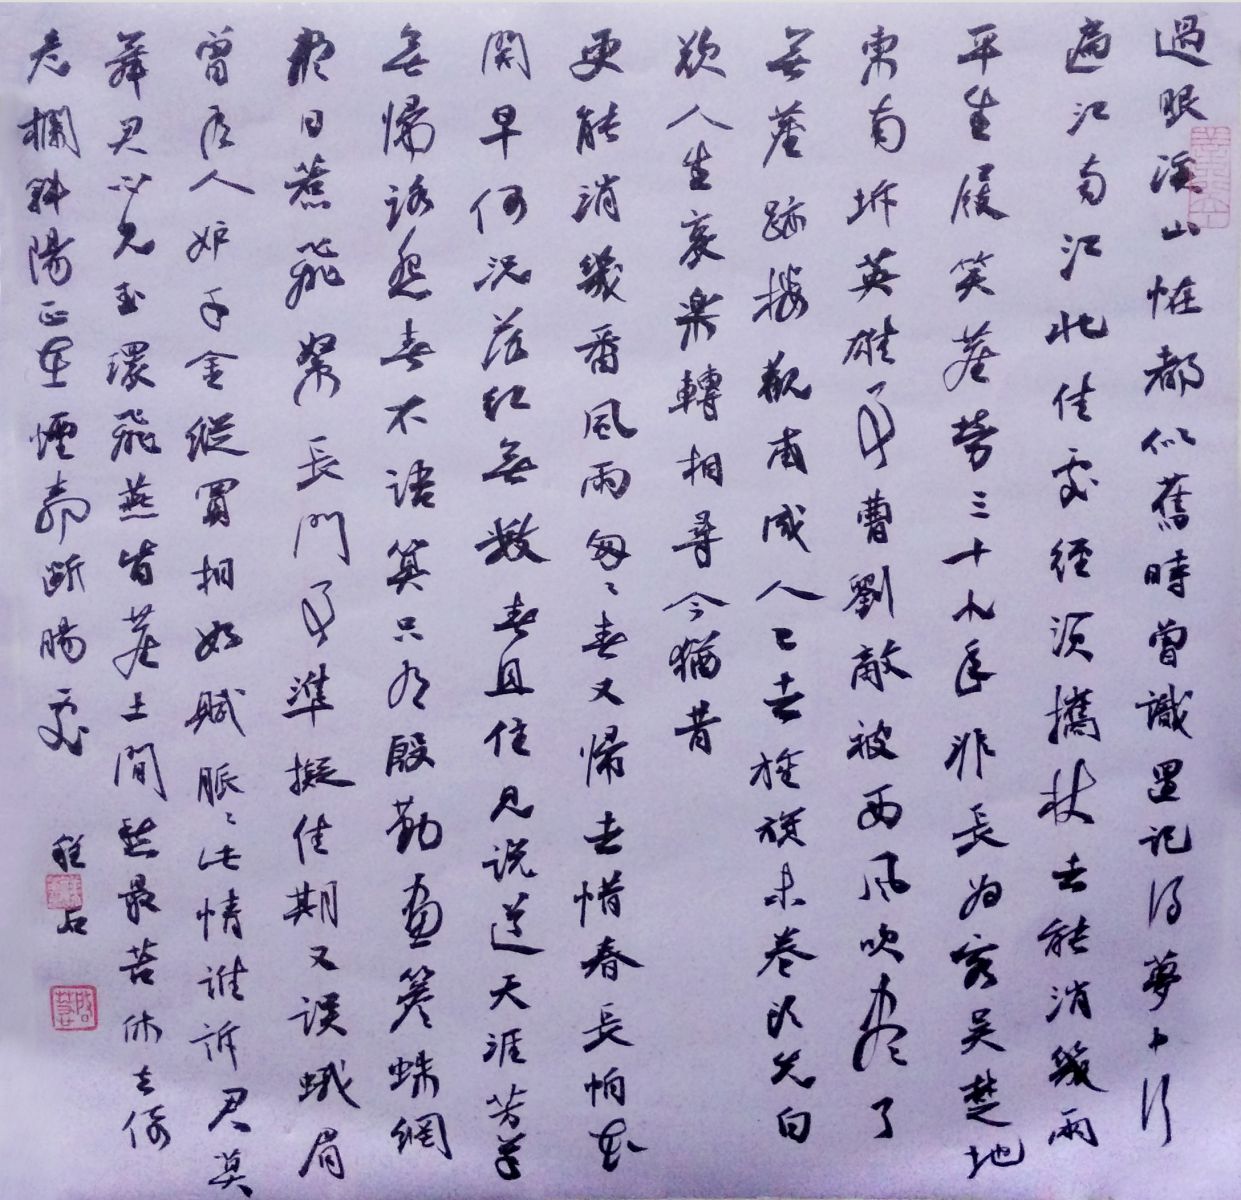 過眼溪山恠都似舊時曾識還記得夢中行
遍江南江北佳處徑須攜杖去能消幾兩
平生屐笑塵勞三十九年非長為客吳楚地
東南坼英雄事曹劉敵被西風吹盡了
無塵跡樓觀甫成人已去旌旗未卷頭先白
歎人生哀樂轉相尋今猶昔
更能消幾番風雨匆々春又歸去惜春長怕花
開早何況落紅無數春且住見說道天涯芳草
無歸路怨春不語算只有殷勤畫簷蛛網
盡日惹飛絮長門事準擬佳期又誤蛾眉
曾有人妒千金縱買相如賦脈々此情誰訴君莫
舞君不見玉環飛燕皆塵土閒愁最苦休去倚
危欄斜陽正在煙柳斷腸處
石